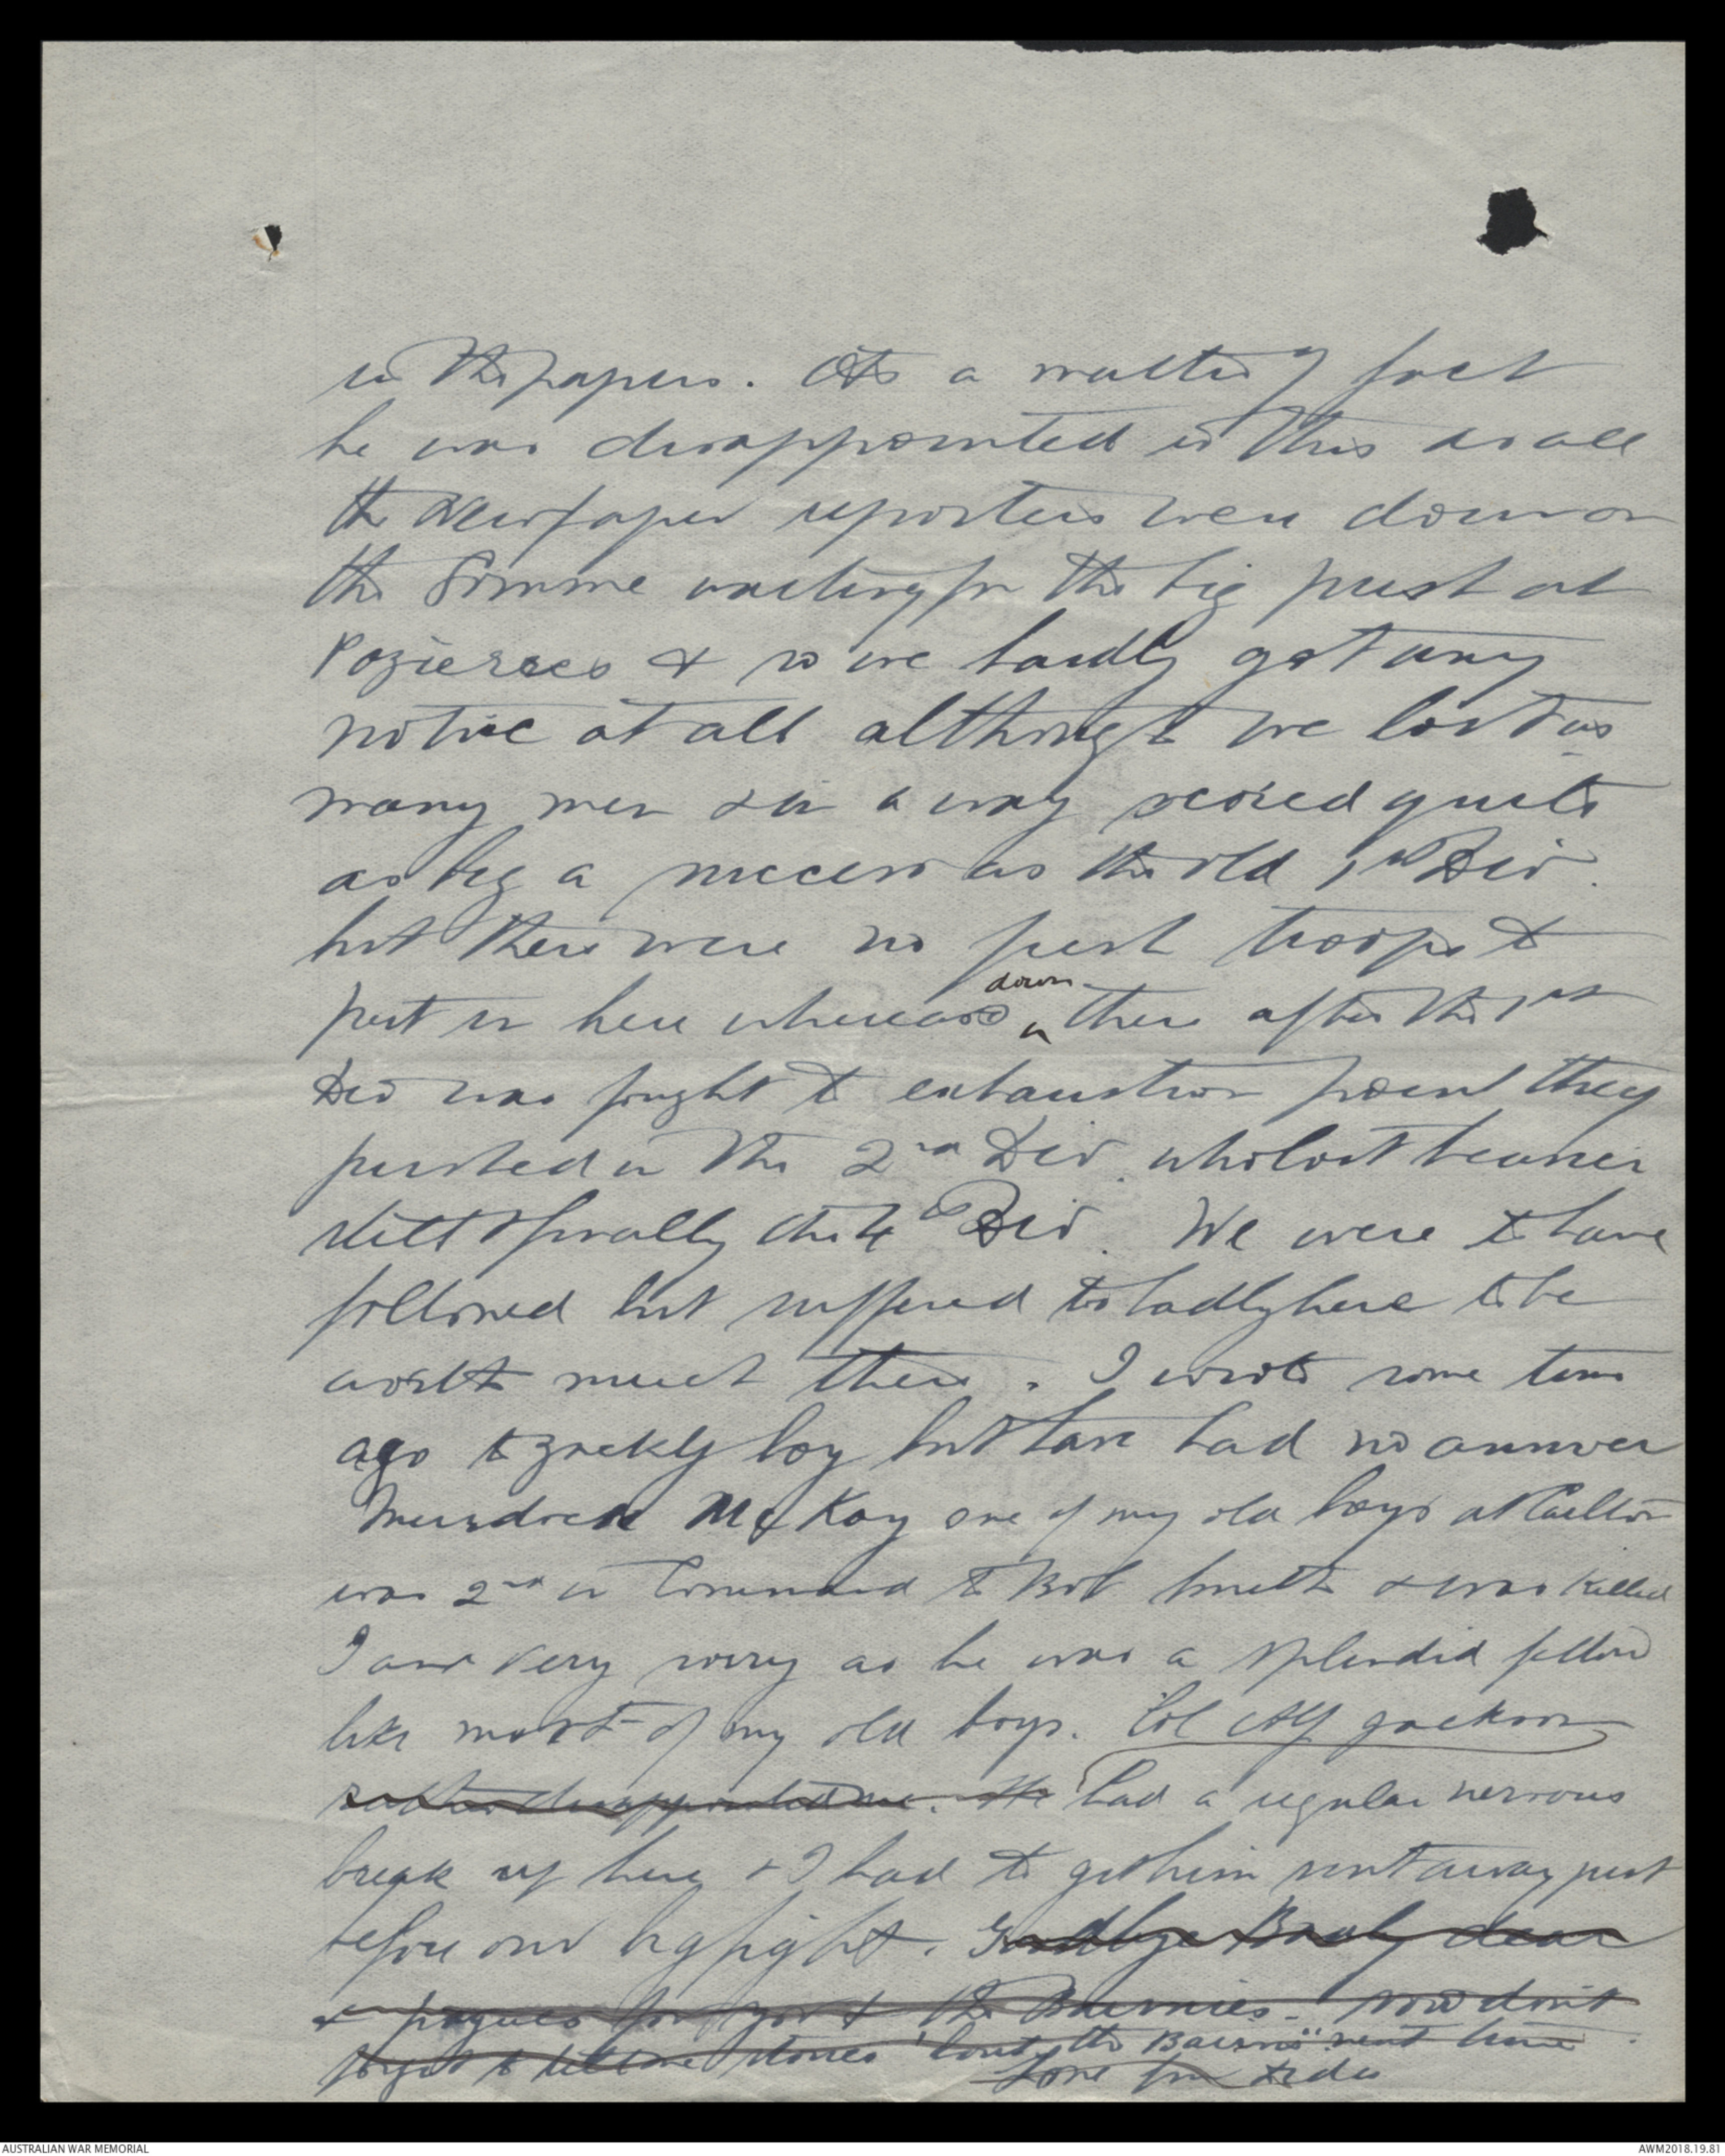 in the papers. As a matter of fact
he was disappointed in this as all
the newspaper reporters were down on
the Somme waiting for the big push at
Pozieres & so we hardly got any
notice at all although we lost as
many men & in a way scored quite
as big a success as the old 1st Div.
but there were no fresh troops to
put in here whereas down there after the 1st
Div was fought to exhaustion point they
pushed in the 2nd Div. who lost heavier
still & finally the 4th Div. We were to have
followed but suffered too badly here to be
worth much there. I wrote some time
ago to boy but have had no answer
Murdoch McKay one of my old boys at Carlton
was 2nd in Command to Bob Smith & was killed
I am very sorry as he was a splendid fellow
like most of my old boys. Col Alf Jackson
rather disappointed me. He had a regular nervous
break up here & I had to get him sent away just
before our big fight. Goodbye dear
& prayers for you & the Bairnies. Now don't
forget to tell me stories 'bout the Bairns" next time
Love from
AUSTRALIAN WAR MEMORIAL
AWM2018.19.81